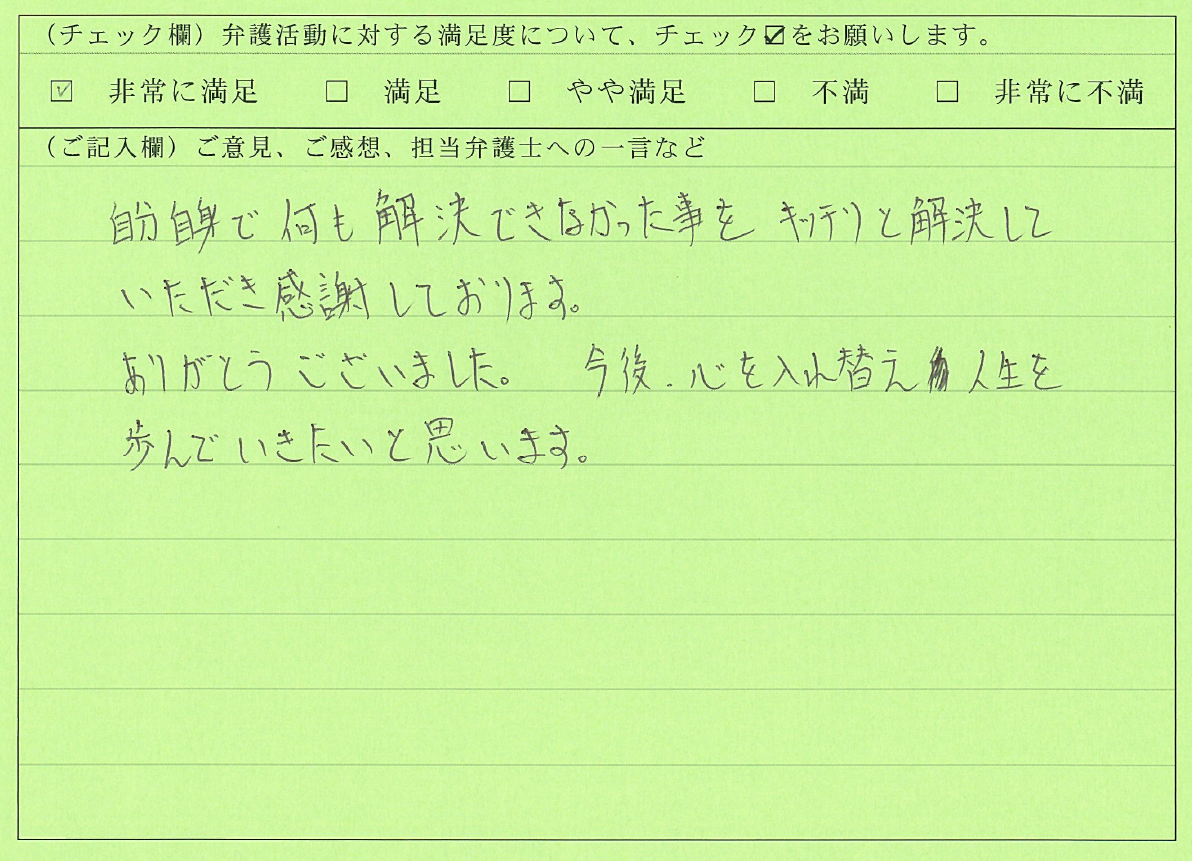 （チェック欄）弁護活動に対する満足度について、チェック☑をお願いします。
☑ 非常に満足 □ 満足 □ やや満足 □ 不満 □ 非常に不満
（ご記入欄）ご意見、ご感想、担当弁護士への一言など
自分自身で何も解決できなかった事を キッチリと解決して
いただき感謝しております。
ありがとうございました。 今後、心を入れ替え 人生を
歩んでいきたいと思います。